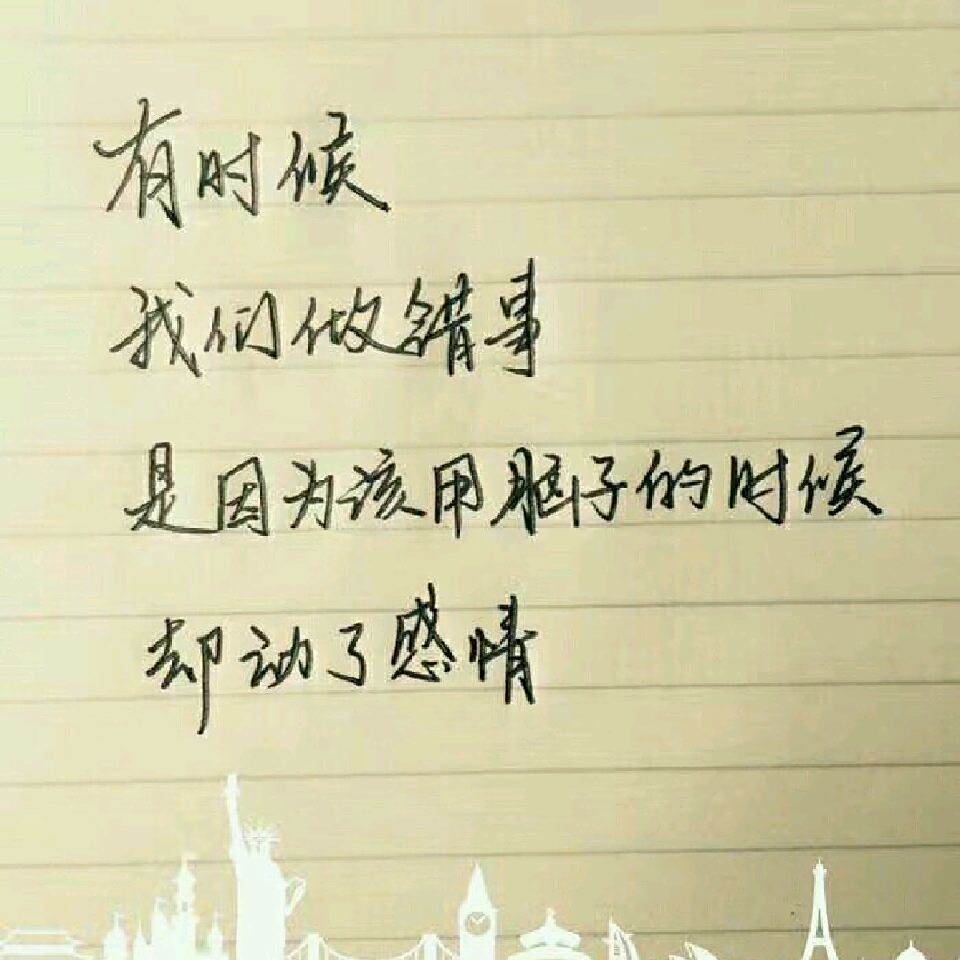 有时候
我们做错事
是因为该用脑子的时候
却动了感情